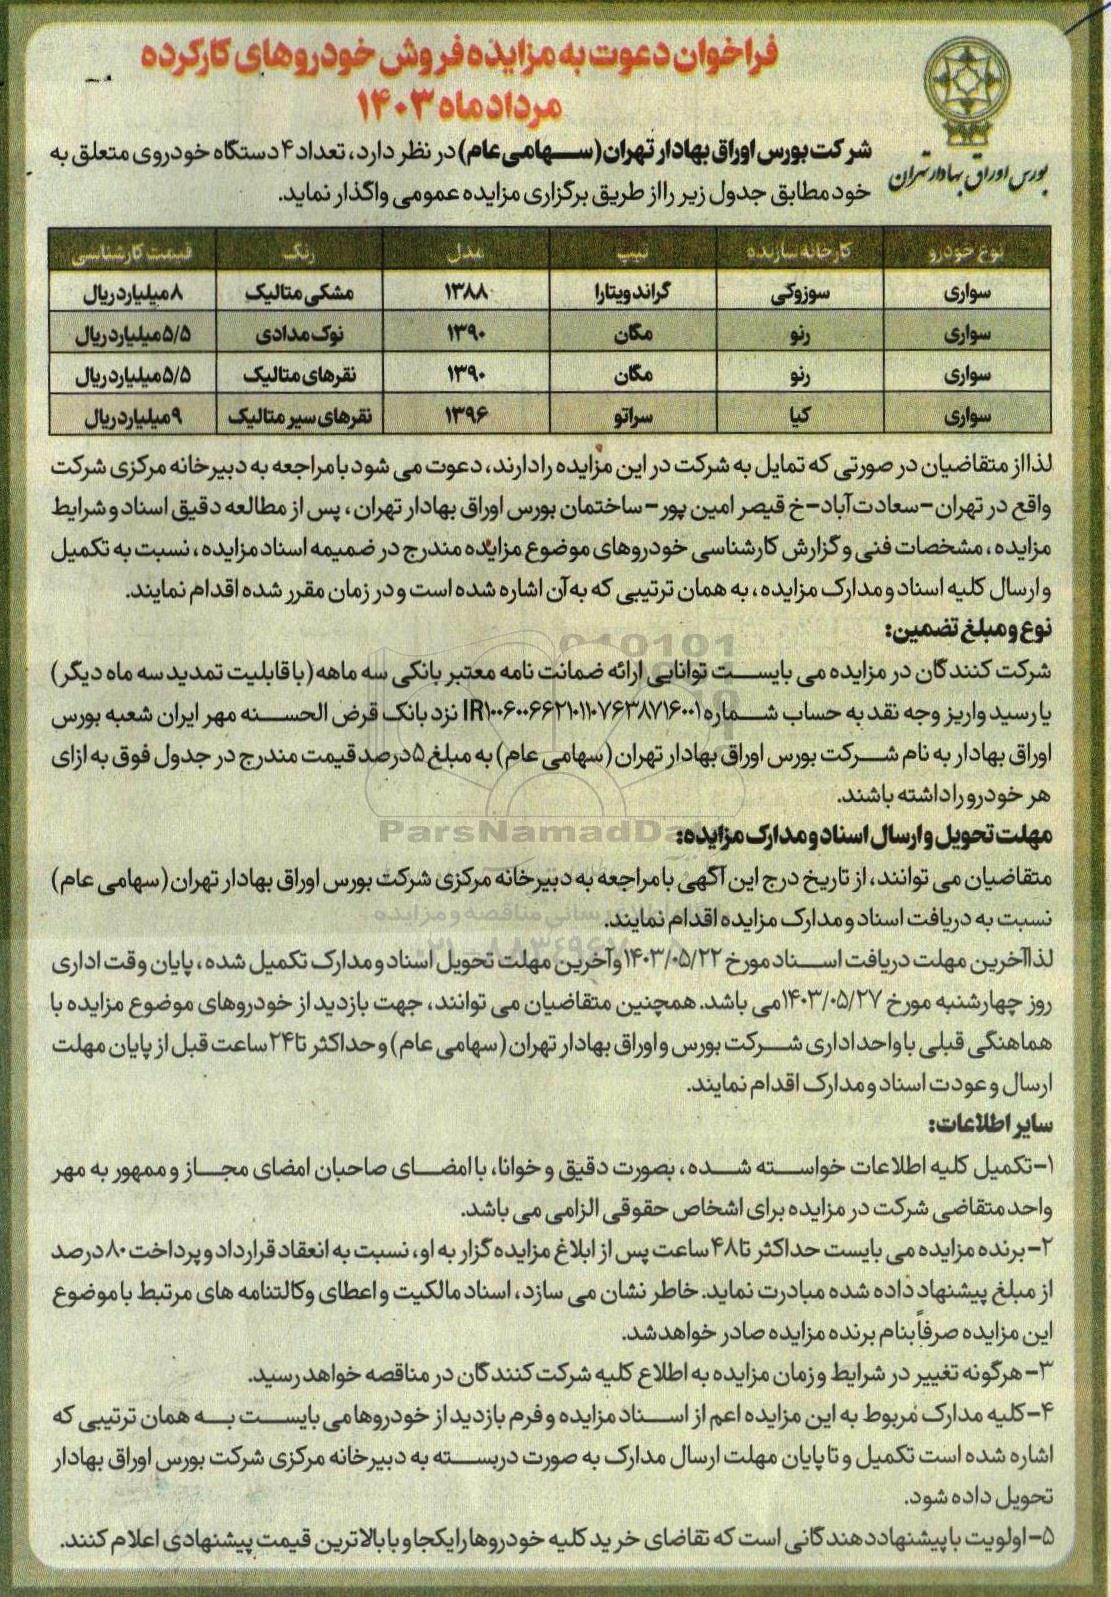 فراخوان دعوت به مزایده فروش خودروهای کارکرده
مرداد ماه ۱۴۰۳
بورس اوراق بهادار تهران
شرکت بورس اوراق بهادار تهران (سهامی عام) در نظر دارد، تعداد ۴ دستگاه خودروی متعلق به
خود مطابق جدول زیر را از طریق برگزاری مزایده عمومی واگذار نماید.
نوع خودرو کارخانه سازنده تیپ مدل رنگ قیمت کارشناسی
سواری سوزوکی گراند ویتارا ۱۳۸۸ مشکی متالیک ۸ میلیارد ریال
سواری رنو مگان ۱۳۹۰ نوک مدادی ۵/۵ میلیارد ریال
سواری رنو مگان ۱۳۹۰ نقره‌ای متالیک ۵/۵ میلیارد ریال
سواری کیا سراتو ۱۳۹۶ نقره‌ای سیر متالیک ۹ میلیارد ریال
لذا از متقاضیان در صورتی که تمایل به شرکت در این مزایده را دارند، دعوت می شود با مراجعه به دبیرخانه مرکزی شرکت
واقع در تهران - سعادت آباد - خ قیصر امین پور - ساختمان بورس اوراق بهادار تهران، پس از مطالعه دقیق اسناد و شرایط
مزایده، مشخصات فنی و گزارش کارشناسی خودروهای موضوع مزایده مندرج در ضمیمه اسناد مزایده، نسبت به تکمیل
و ارسال کلیه اسناد و مدارک مزایده، به همان ترتیبی که به آن اشاره شده است و در زمان مقرر شده اقدام نمایند.
نوع و مبلغ تضمین:
شرکت کنندگان در مزایده می بایست توانایی ارائه ضمانت نامه معتبر بانکی سه ماهه (با قابلیت تمدید سه ماه دیگر)
یا رسید واریز وجه نقد به حساب شماره IR۱۰۰۶۰۰۶۶۲۱۰۱۱۰۷۶۳۸۷۱۶۰۰۱ نزد بانک قرض الحسنه مهر ایران شعبه بورس
اوراق بهادار به نام شرکت بورس اوراق بهادار تهران (سهامی عام) به مبلغ ۵ درصد قیمت مندرج در جدول فوق به ازای
هر خودرو را داشته باشند.
ParsNamadData
مهلت تحویل و ارسال اسناد و مدارک مزایده:
متقاضیان می توانند، از تاریخ درج این آگهی با مراجعه به دبیرخانه مرکزی شرکت بورس اوراق بهادار تهران (سهامی عام)
نسبت به دریافت اسناد و مدارک مزایده اقدام نمایند.
لذا آخرین مهلت دریافت اسناد مورخ ۱۴۰۳/۰۵/۲۲ و آخرین مهلت تحویل اسناد و مدارک تکمیل شده، پایان وقت اداری
روز چهارشنبه مورخ ۱۴۰۳/۰۵/۲۷ می باشد. همچنین متقاضیان می توانند، جهت بازدید از خودروهای موضوع مزایده با
هماهنگی قبلی با واحد اداری شرکت بورس و اوراق بهادار تهران (سهامی عام) و حداکثر تا ۲۴ ساعت قبل از پایان مهلت
ارسال و عودت اسناد و مدارک اقدام نمایند.
سایر اطلاعات:
۱- تکمیل کلیه اطلاعات خواسته شده، بصورت دقیق و خوانا، با امضای صاحبان امضای مجاز و ممهور به مهر
واحد متقاضی شرکت در مزایده برای اشخاص حقوقی الزامی می باشد.
۲- برنده مزایده می بایست حداکثر تا ۴۸ ساعت پس از ابلاغ مزایده گزار به او، نسبت به انعقاد قرارداد و پرداخت ۸۰ درصد
از مبلغ پیشنهاد داده شده مبادرت نماید. خاطر نشان می سازد، اسناد مالکیت و اعطای وکالتنامه های مرتبط با موضوع
این مزایده صرفاً بنام برنده مزایده صادر خواهد شد.
۳- هرگونه تغییر در شرایط و زمان مزایده به اطلاع کلیه شرکت کنندگان در مناقصه خواهد رسید.
۴- کلیه مدارک مربوط به این مزایده اعم از اسناد مزایده و فرم بازدید از خودروها می بایست به همان ترتیبی که
اشاره شده است تکمیل و تا پایان مهلت ارسال مدارک به صورت دربسته به دبیرخانه مرکزی شرکت بورس اوراق بهادار
تحویل داده شود.
۵- اولویت با پیشنهاددهندگانی است که تقاضای خرید کلیه خودروها را یکجا و با بالاترین قیمت پیشنهادی اعلام کنند.